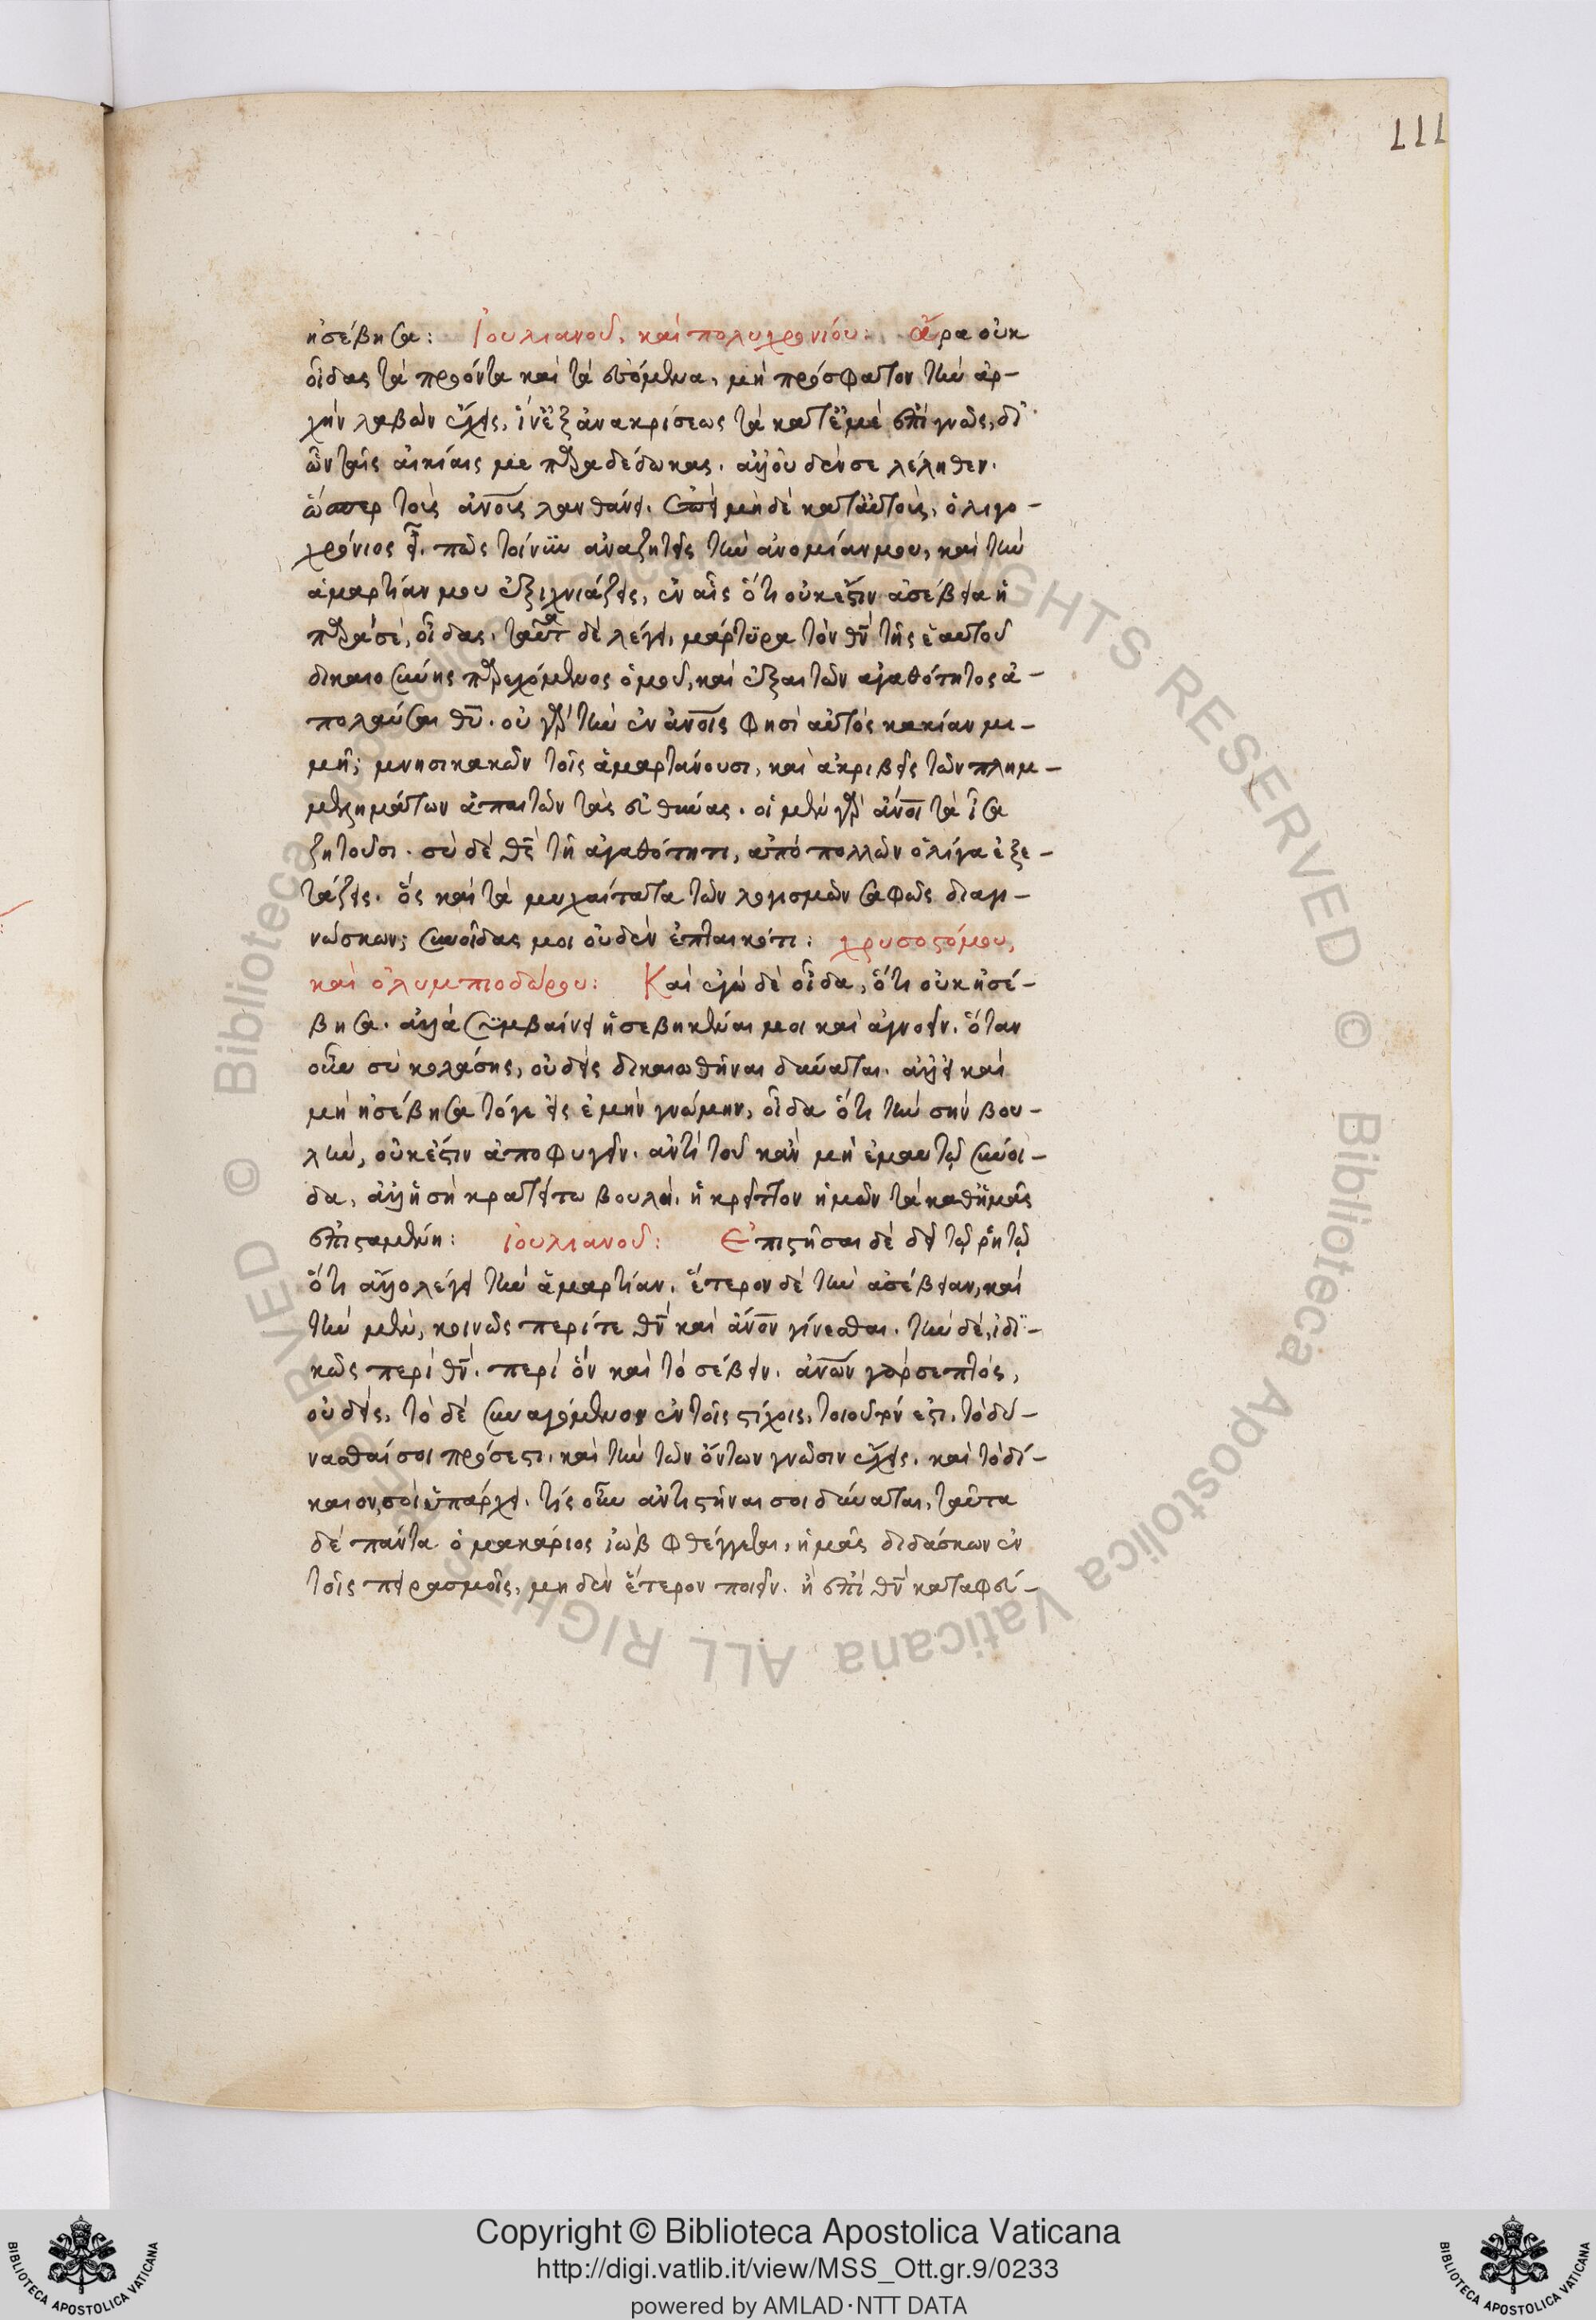 111
ἠσέβησα: Ἰουλιανοῦ, καὶ πολυχρονίου: ἆρα οὐκ
οἶδας τὰ προόντα καὶ τὰ ἐσόμενα, μὴ πρόσφατον τὴν ἀρ-
χὴν λαβὼν ἔχεις, ἵν' ἐξ ἀνακρίσεως τὰ κατ' ἐμὲ ἐπιγνῷς, δι'
ὧν ταῖς αἰκίαις με παραδέδωκας. ἀλλ' οὐδέν σε λέληθεν.
ὥσπερ τοὺς ἀνους λανθάνει. ἐπεὶ μὴ δὲ κατ' αὐτοὺς, ὀλιγο-
χρόνιος εἶ. πῶς τοίνυν ἀναζητεῖς τὴν ἀνομίαν μου, καὶ τὴν
ἁμαρτίαν μου ἐξιχνιάζεις, ἐν αἷς ὅτι οὐκ ἔστιν ἀσέβεια ἡ
παρὰ σὲ, οἶδας. ταῦτα δὲ λέγει, μάρτυρα τὸν θν τῆς ἑαυτοῦ
δικαιοσύνης παρεχόμενος ὁμοῦ, καὶ ἐξαιτῶν ἀγαθότητος ἀ-
πολαῦσαι θυ. οὐ γὰρ τὴν ἐν ἀνοις φησὶ αὐτὸς κακίαν μι-
μῇ; μνησικακῶν τοῖς ἁμαρτάνουσι, καὶ ἀκριβεῖς τῶν πλημ-
μελημάτων ἀπαιτῶν τὰς εὐθύνας. οἱ μὲν γὰρ ἀνοι τὰ ἴσα
ζητοῦσι. σὺ δὲ θε τῇ ἀγαθότητι, ἀπὸ πολλῶν ὀλίγα ἐξε-
τάζεις. ὃς καὶ τὰ μυχαίτατα τῶν λογισμῶν σαφῶς διαγι-
νώσκων; συνοῖδας μοι οὐδὲν ἐπταικότι: χρυσοστόμου,
καὶ ὀλυμπιοδώρου: Καὶ ἐγὼ δὲ οἶδα, ὅτι οὐκ ἠσέ-
βησα. ἀλλὰ συμβαίνει ἠσεβηκέναι μοι καὶ ἀγνοεῖν. ὅταν
οὖν σὺ κολάσῃς, οὐδεὶς δικαιωθῆναι δύναται. ἀλλ' εἰ καὶ
μὴ ἠσέβησα τόγε εἰς ἐμὴν γνώμην, οἶδα ὅτι τὴν σὴν βου-
λὴν, οὐκ ἔστιν ἀποφυγεῖν. ἀντὶ τοῦ κἂν μὴ ἐμαυτῷ σύνοι-
δα, ἀλλ' ἡ σὴ κρατείτω βουλὴ, ἡ κρεῖττον ἡμῶν τὰ καθ' ἡμᾶς
ἐπισταμένη: ἰουλιανοῦ: Ἐπιστῆσαι δὲ δεῖ τῷ ῥητῷ
ὅτι ἄλλο λέγει τὴν ἁμαρτίαν, ἕτερον δὲ τὴν ἀσέβειαν, καὶ
τὴν μὲν, κοινῶς περί τε θν καὶ ἀνον γίνεσθαι. τὴν δὲ, ἰδι-
κῶς περὶ θν. περὶ ὃν καὶ τὸ σέβειν. ἀνων γὰρ σεπτὸς,
οὐδεὶς, τὸ δὲ συναγόμενον ἐν τοῖς στίχοις, τοιοῦτόν ἐστι. τὸ δύ-
νασθαί σοι πρόσεστι. καὶ τὴν τῶν ὄντων γνῶσιν ἔχεις. καὶ τὸ δί-
καιον σοὶ ὑπάρχει. τίς οὖν ἀντιστῆναι σοι δύναται, ταῦτα
δὲ πάντα ὁ μακάριος ἰὼβ φθέγγεται, ἡμᾶς διδάσκων ἐν
τοῖς πειρασμοῖς, μηδὲν ἕτερον ποιεῖν. ἢ ἐπὶ θν καταφεύ-
Copyright © Biblioteca Apostolica Vaticana
http://digi.vatlib.it/view/MSS_Ott.gr.9/0233
powered by AMLAD·NTT DATA
BIBLIOTECA APOSTOLICA VATICANA
BIBLIOTECA APOSTOLICA VATICANA
© Biblioteca Apostolica Vaticana ALL RIGHTS RESERVED © Biblioteca Apostolica Vaticana ALL RIGHTS RESERVED